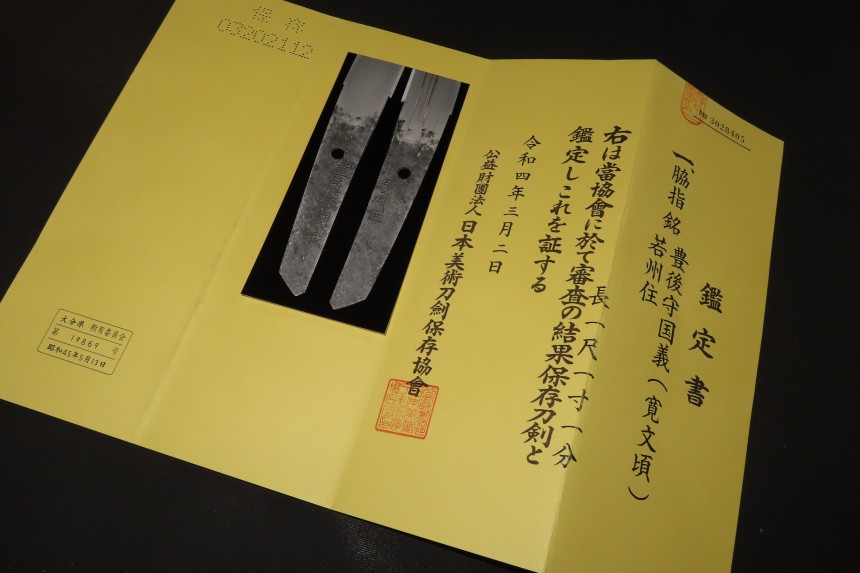 № 3028405
鑑定書
一、脇指 銘 豊後守国義(寛文頃)
若州住
長一尺一寸一分
右は當協會に於て審査の結果保存刀剣と
鑑定しこれを証する
令和四年三月二日
公益財團法人 日本美術刀劍保存協會
保存
03202112
大分県 教育委員会
第 19869 号
昭和45年5月13日